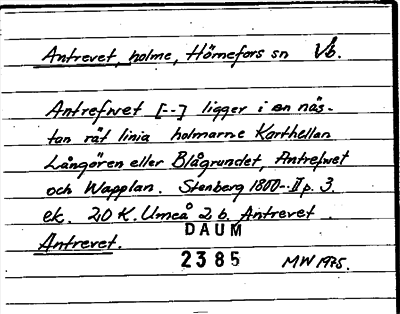 Antrevet, holme, Hörnefors sn Vb.
Antrefwet [--] ligger i en näs-
tan rät linia holmarne Karthellan
Långören eller Blågrundet, Antrefwet
och Wapplan. Stenberg 1800-. II p. 3.
ek. 20 K. Umeå 2 b. Antrevet.
Antrevet.
DAUM
2385 MW 1975.